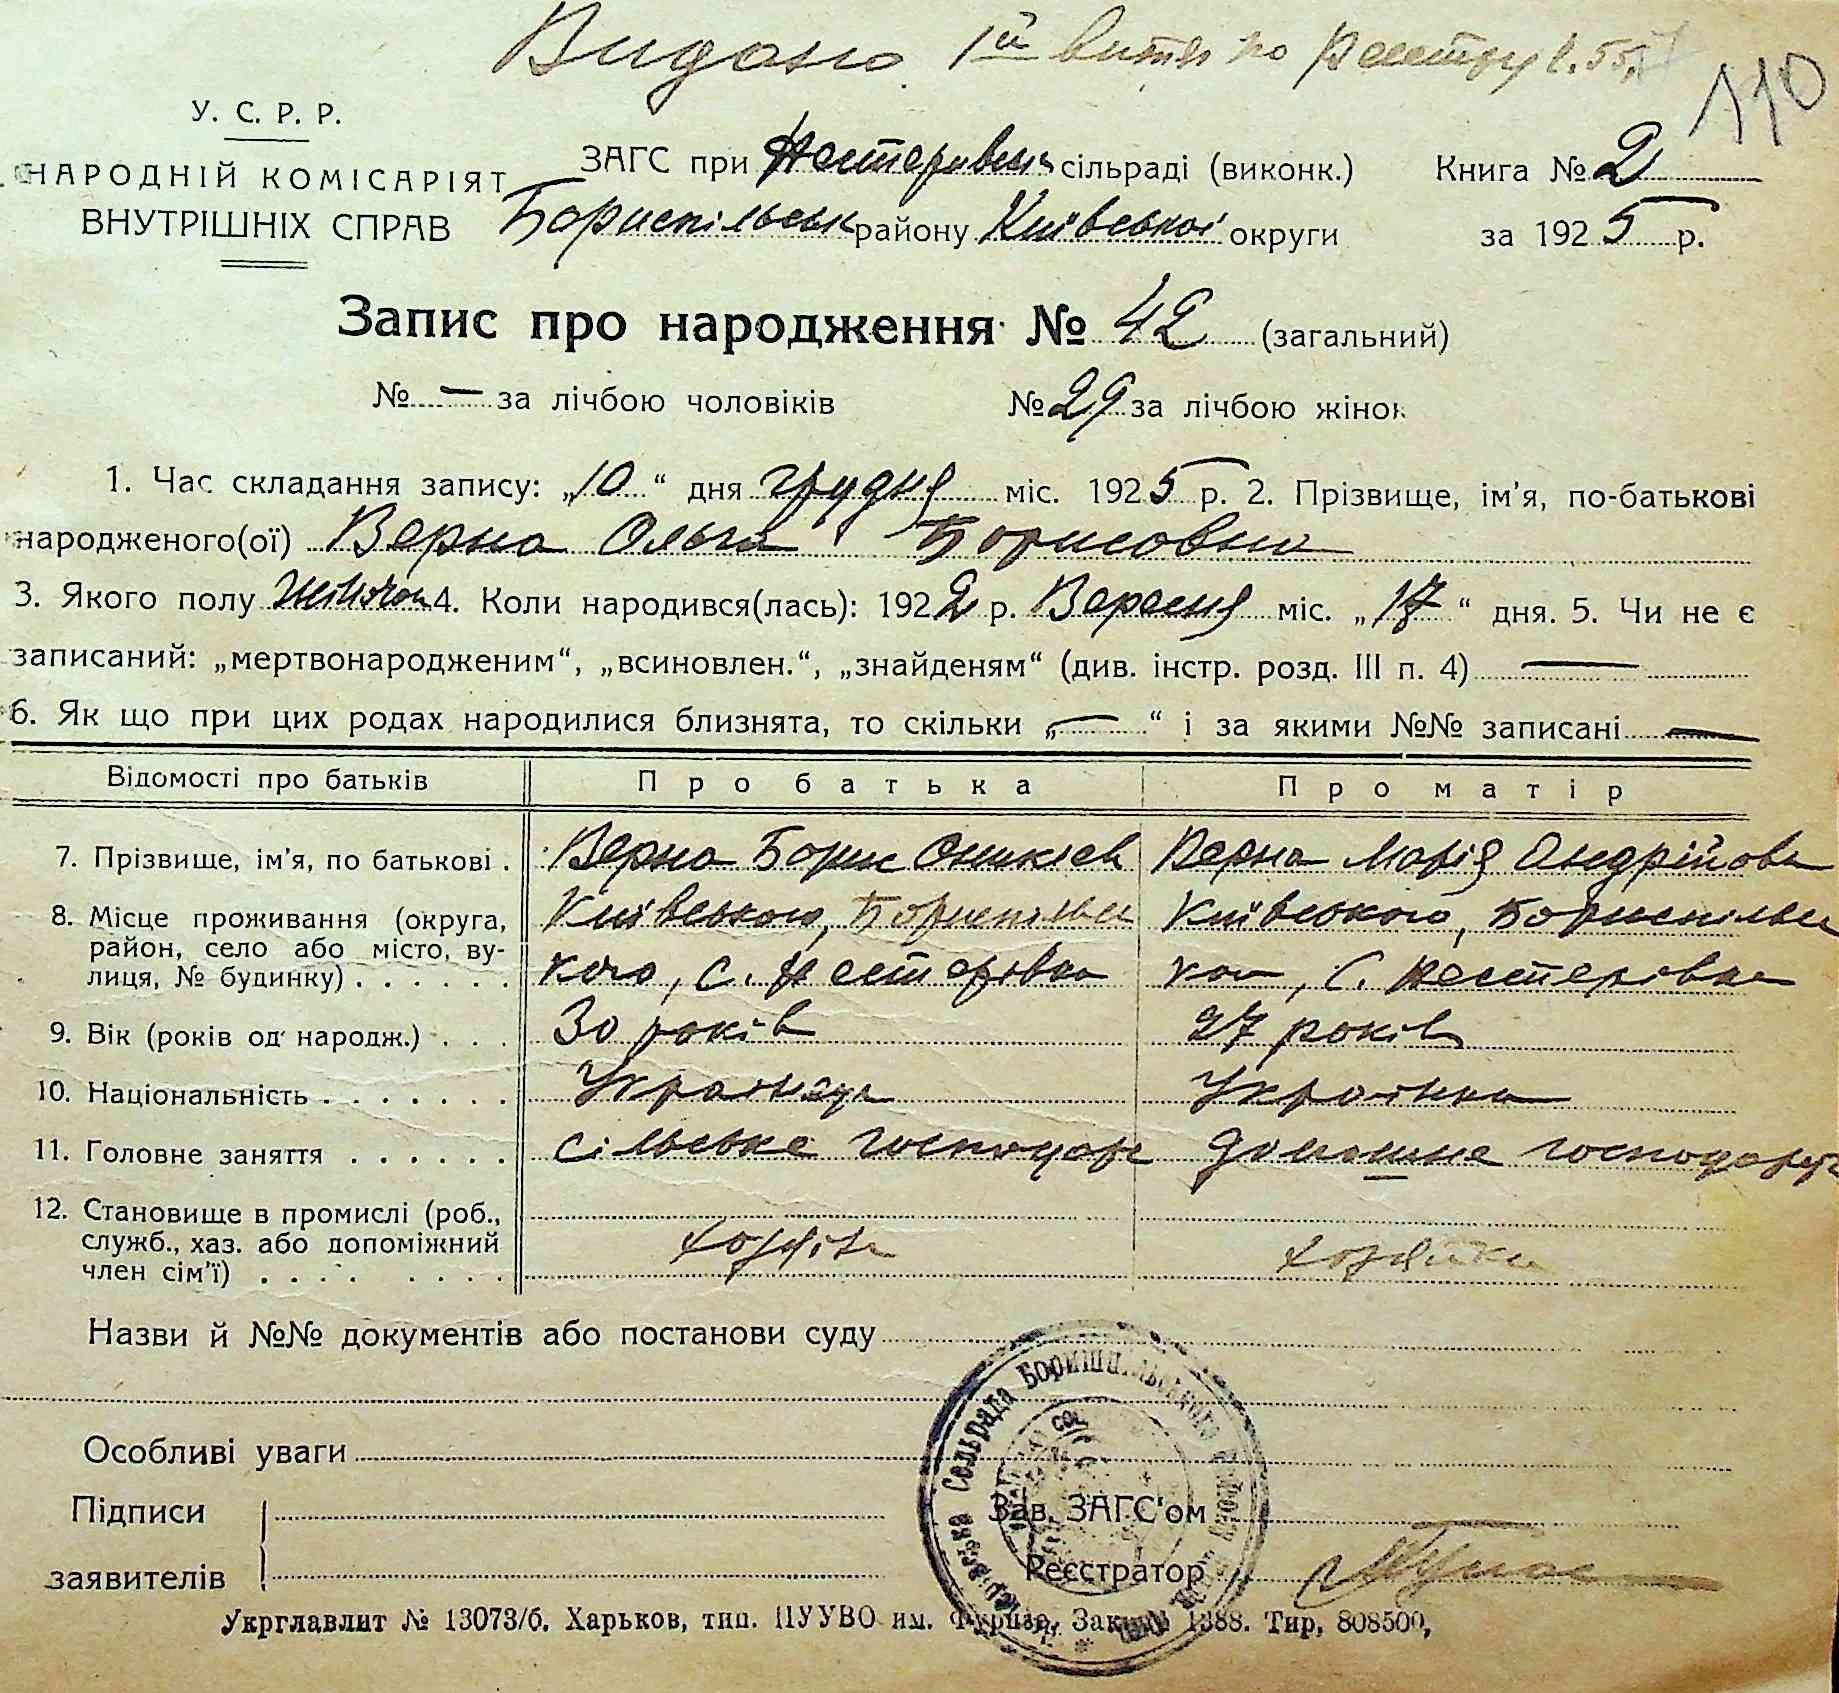 Видано 1й витяг по реєстру
110
У. С. Р. Р.
НАРОДНІЙ КОМІСАРІЯТ
ВНУТРІШНІХ СПРАВ
ЗАГС при Нестерівськ сільраді (виконк.)
Бориспільськ району Київської округи
Книга № 2
за 1925 р.
Запис про народження № 42 (загальний)
№ — за лічбою чоловіків № 29 за лічбою жінок
1. Час складання запису: „10“ дня грудня міс. 1925 р. 2. Прізвище, ім’я, по-батькові
народженого(ої) Верна Ольга Борисовна
3. Якого полу жіночої 4. Коли народився(лась): 1922 р. Вересня міс. „17“ дня. 5. Чи не є
записаний: „мертвонародженим“, „всиновлен.“, „знайденям“ (див. інстр. розд. III п. 4) —
6. Як що при цих родах народилися близнята, то скільки „—“ і за якими №№ записані —
Відомості про батьків Про батька Про матір
7. Прізвище, ім’я, по батькові . Верна Борис Оникієв Верна Марія Андрійовн
8. Місце проживання (округа, Київською, Бориспільсь Київською, Бориспільсь
район, село або місто, ву-
лиця, № будинку) . . . . . . кого, с. Нестерівка кои, с. Нестерівка
9. Вік (років од народж.) . . . 30 років 27 років
10. Національність . . . . . . . Українець Українка
11. Головне заняття . . . . . . сільське господар домашнє господарст
12. Становище в промислі (роб.,
служб., хаз. або допоміжний хозяїн хозяйка
член сім’ї) . . . . . . . .
Назви й №№ документів або постанови суду
Особливі уваги
Підписи
заявителів
Зав. ЗАГС’ом
Реєстратор
Сельрада Боришпільського
Укрглавлит № 13073/б. Харьков, тип. ПУУВО им. Фрунзе, Заказ № 1388. Тир, 808500,